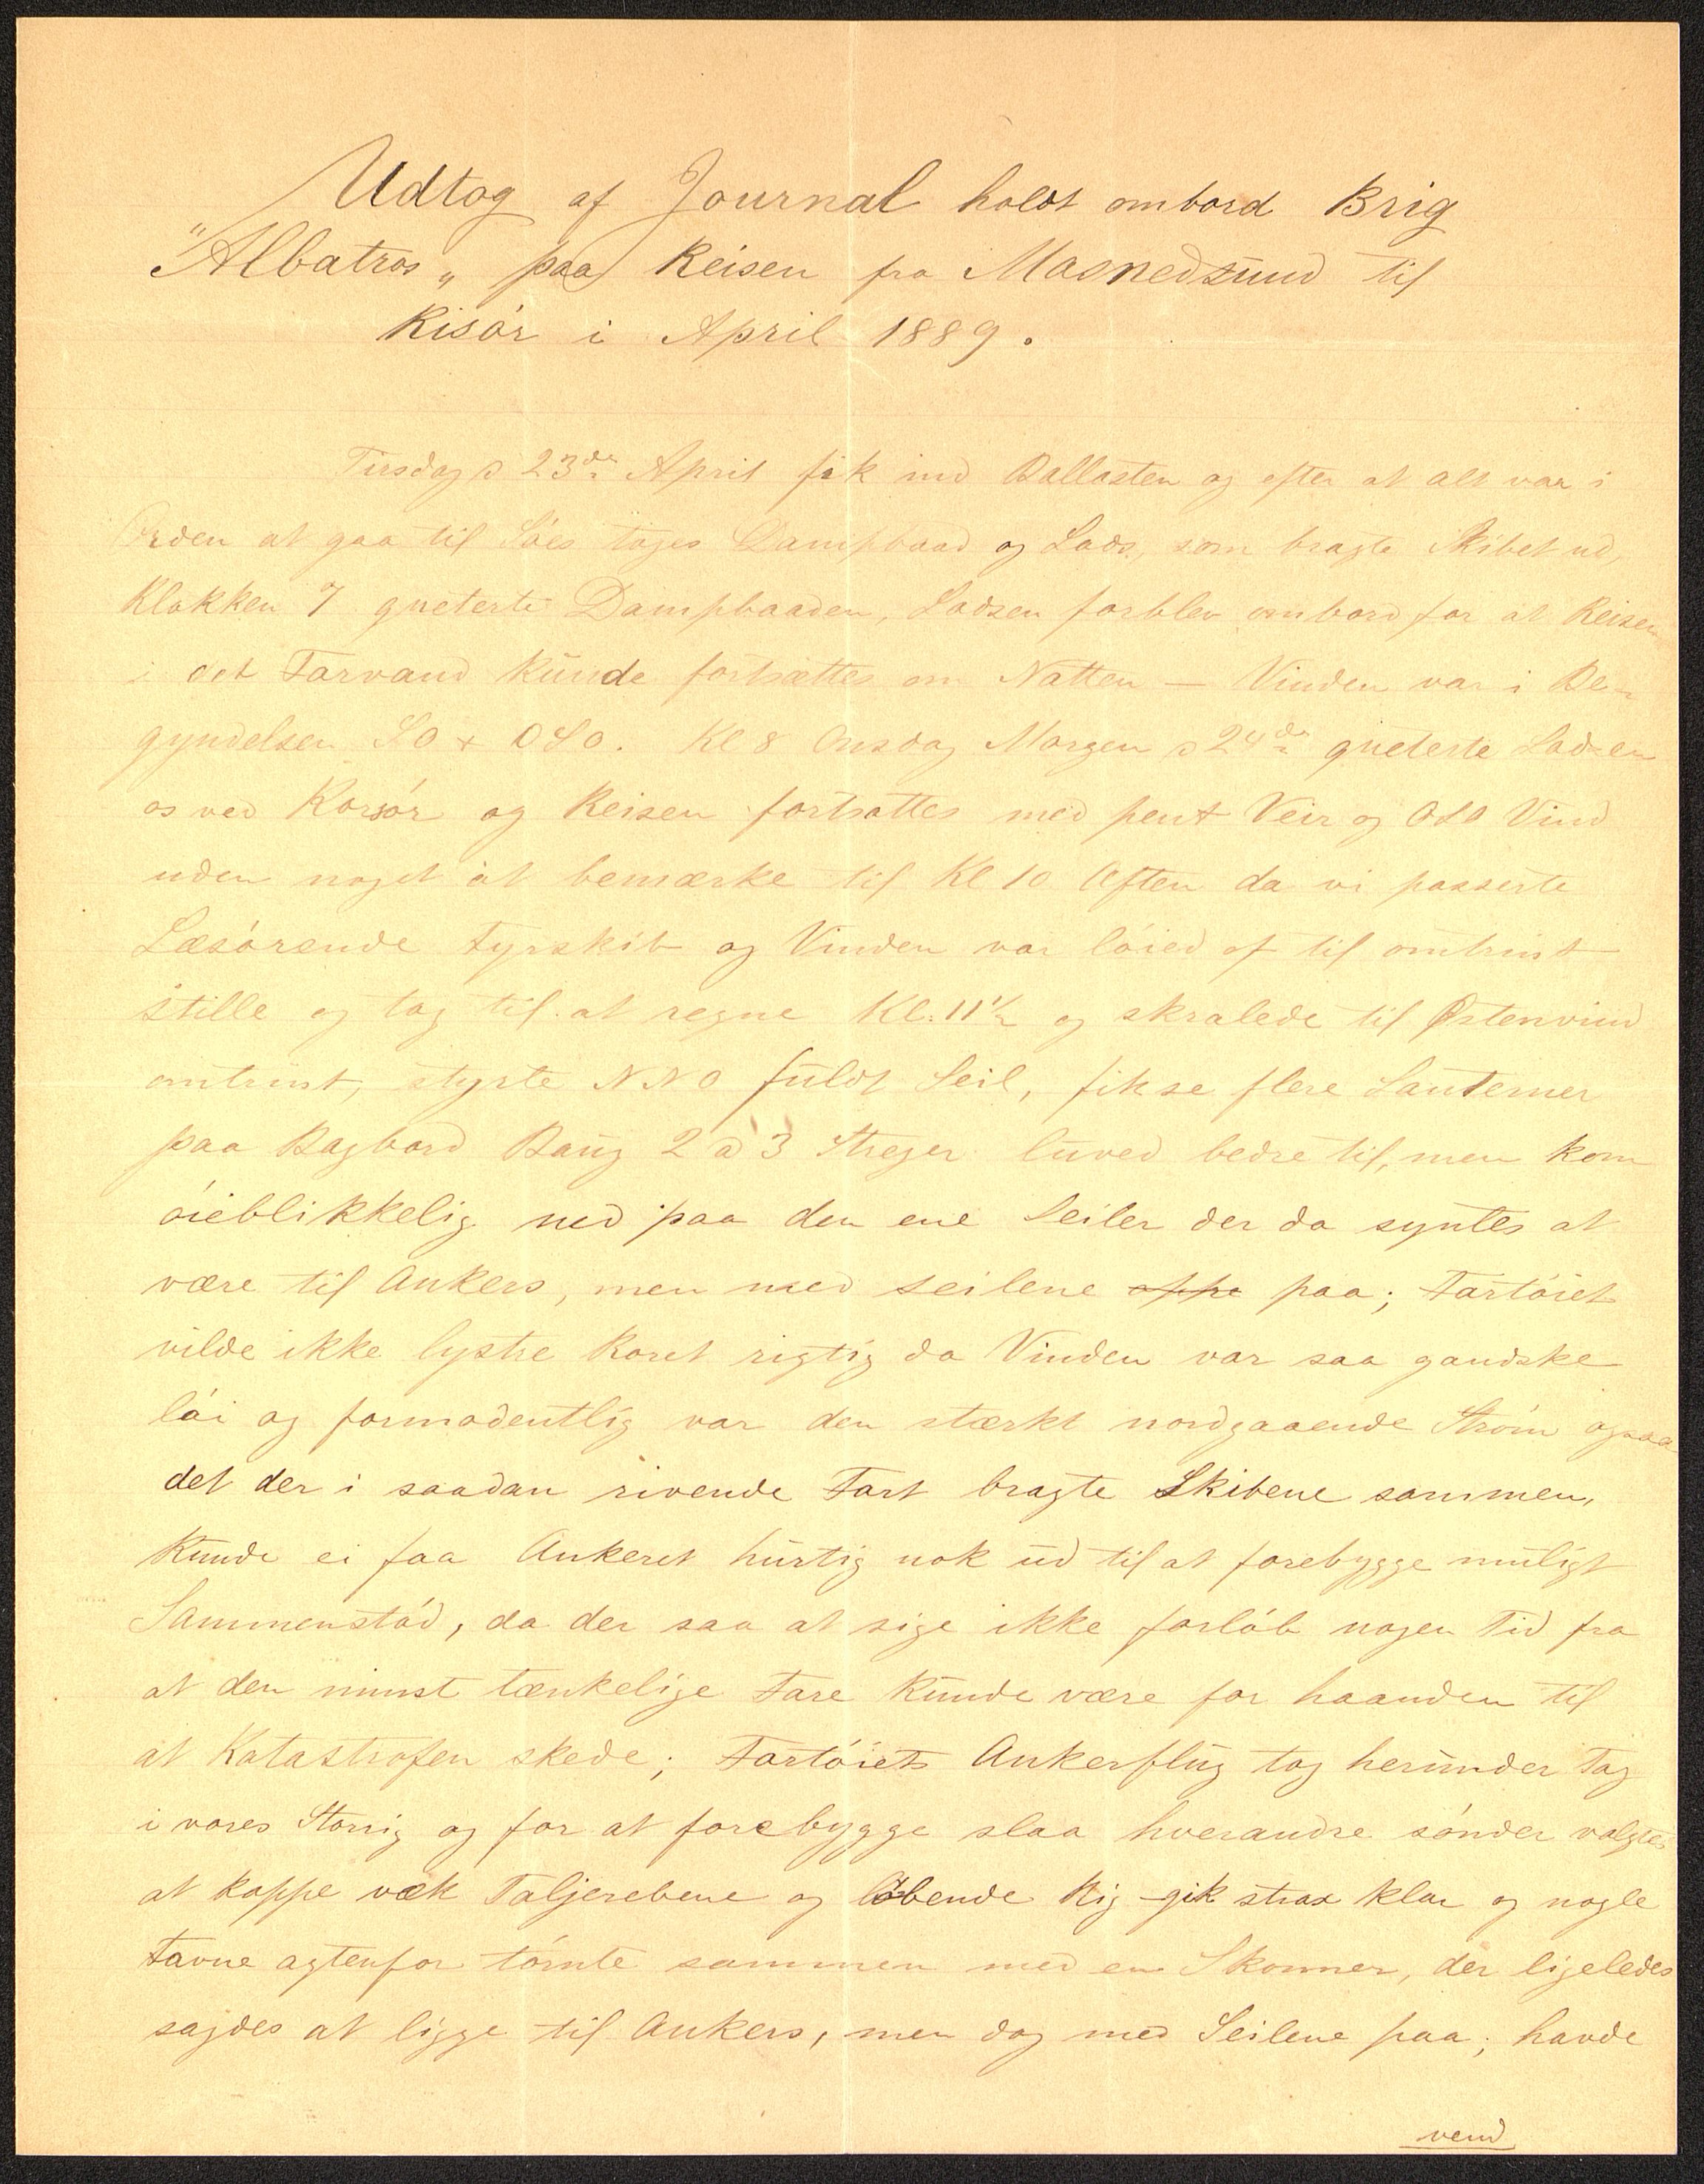 Udtog af Journal holdt ombord Brig
"Albatros„ paa Reisen fra Masnedsund til
Risór i April 1889.
Tirsdag d 23de April fik ind Ballasten og efter at alt var i
Orden at gaa til Sóes toges Dampbaad og Lods, som bragte Skibet ud,
Klokken 7 qveterte Dampbaaden, Lodsen forblev ombord for at Reisen
i det Farvand kunde fortsættes om Natten — Vinden var i Be-
gyndelsen SO + OSO. Kl 8 Onsdag Morgen d 24de qveterte Lodsen
os ved Korsór og Reisen fortsattes med pent Veir og OSO Vind
uden noget at bemærke til Kl 10 Aften da vi passerte
Læsórende Fyrskib og Vinden var lóied af til omtrent
stille og tog til at regne Kl. 11½ og skralede til Østenvind
omtrent, styrte NNO fuldt Seil, fik se flere Lanterner
paa Bagbord Baug 2 à 3 Streger luved bedre til, men kom
óieblikkelig ned paa den ene Seiler der da syntes at
være til Ankers, men med seilene oppe paa; Fartóiet
vilde ikke lystre Roret rigtig da Vinden var saa gandske
lói og formodentlig var den stærkt nordgaaende Stróm ogsaa
det der i saadan rivende Fart bragte Skibene sammen,
Kunde ei faa Ankeret hurtig nok ud til at forebygge muligt
Sammenstód, da der saa at sige ikke forlób nogen Tid fra
at den minst tænkelige Fare kunde være for haanden til
at Katastrofen skede; Fartóiets Ankerflug tog herunder Tag
i vores Storrig og for at forebygge slaa hverandre sónder valgtes
at kappe væk Taljerebene og lóbende Rig - gik strax klar og nogle
Favne agtenfor tórnte sammen med en Skonner, der ligeledes
sagdes at ligge til Ankers, men dog med Seilene paa; havde
vend